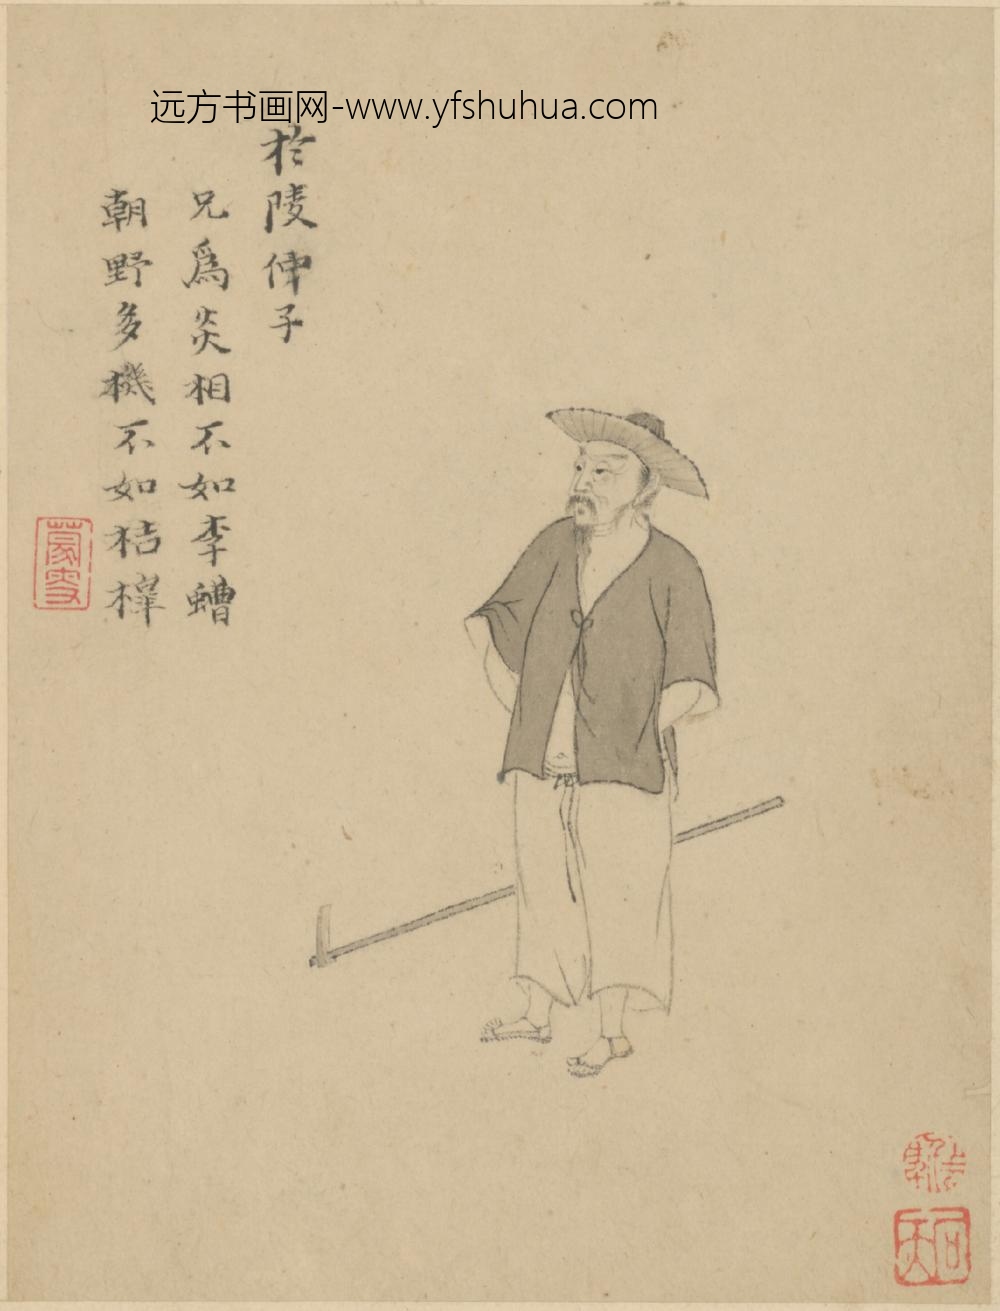 远方书画网-www.yfshuhua.com
於陵仲子
兄為炎相不如李螬
朝野多機不如桔槹